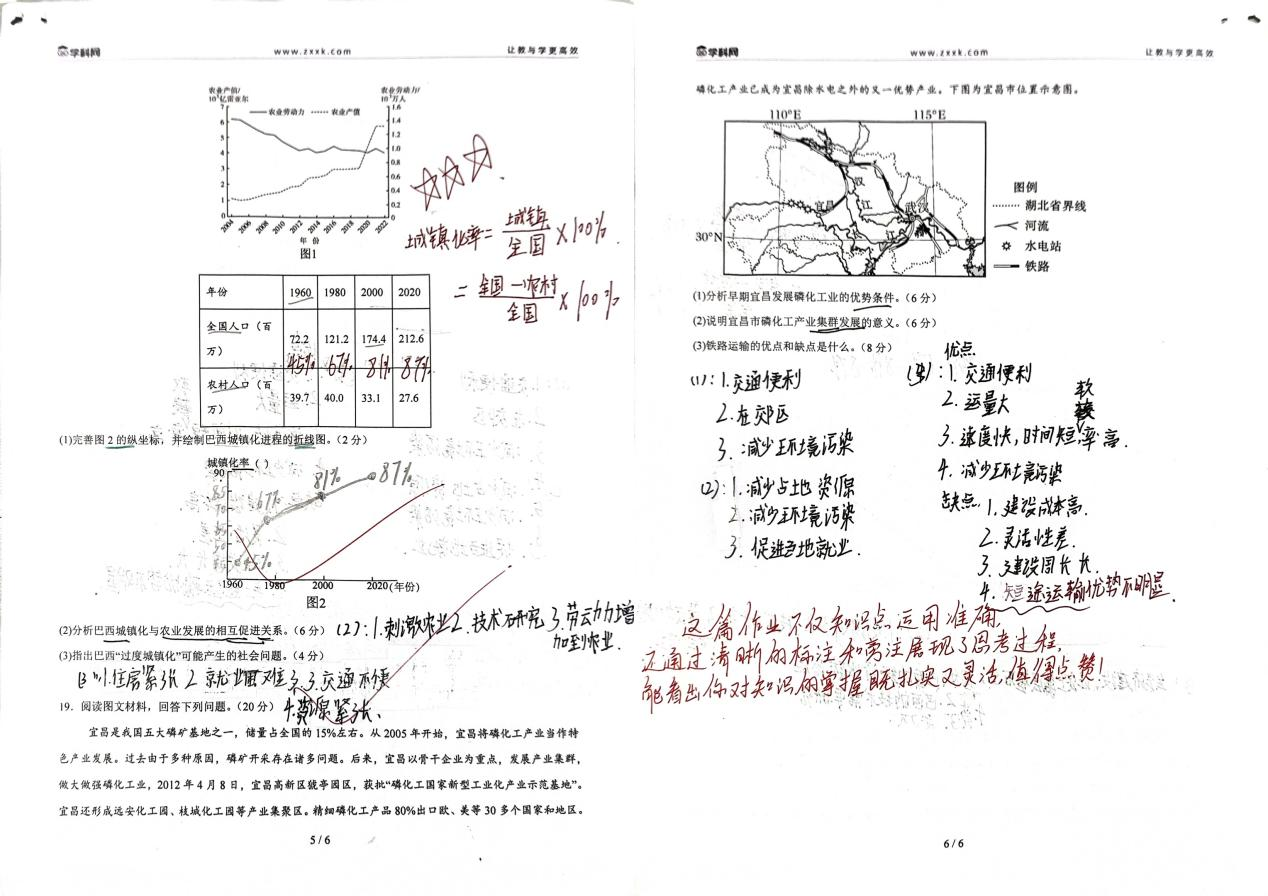 学科网
www.zxxk.com
让教与学更高效
农业产值/
10³亿雷亚尔
农业劳动力/
10³万人
农业劳动力
农业产值
7
6
5
4
3
2
1
0
1.6
1.4
1.2
1.0
0.8
0.6
0.4
0.2
0
2004
2006
2008
2010
2012
2014
2016
2018
2020
2022
年 份
图1
城镇化率= 城镇/全国 ×100%.
= 全国-农村/全国 ×100%
年份 1960 1980 2000 2020
全国人口（百万） 72.2 121.2 174.4 212.6
45% 67% 81% 87%
农村人口（百万） 39.7 40.0 33.1 27.6
(1)完善图 2 的纵坐标，并绘制巴西城镇化进程的折线图。（2 分）
城镇化率（ ）
90
67%
81%
87%
45%
1960 1980 2000 2020(年份)
图2
(2)分析巴西城镇化与农业发展的相互促进关系。（6 分）
(2)：1.刺激农业2.技术研究 3.劳动力增
加到农业.
(3)指出巴西“过度城镇化”可能产生的社会问题。（4 分）
1.住房紧张 2.就业困难 3.交通不便
4.资源紧张.
19．阅读图文材料，回答下列问题。（20 分）
宜昌是我国五大磷矿基地之一，储量占全国的 15%左右。从 2005 年开始，宜昌将磷化工产业当作特
色产业发展。过去由于多种原因，磷矿开采存在诸多问题。后来，宜昌以骨干企业为重点，发展产业集群，
做大做强磷化工业，2012 年 4 月 8 日，宜昌高新区猇亭园区，获批“磷化工国家新型工业化产业示范基地”。
宜昌还形成远安化工园、枝城化工园等产业集聚区。精细磷化工产品 80%出口欧、美等 30 多个国家和地区。
5 / 6
学科网
www.zxxk.com
让教与学更高效
磷化工产业已成为宜昌除水电之外的又一优势产业。下图为宜昌市位置示意图。
110°E
115°E
30°N
汉
江
宜昌
武汉
江
图例
湖北省界线
河流
水电站
铁路
(1)分析早期宜昌发展磷化工业的优势条件。（6 分）
(2)说明宜昌市磷化工产业集群发展的意义。（6 分）
(3)铁路运输的优点和缺点是什么。（8 分）
(1)：1.交通便利
2.在郊区
3.减少环境污染
(2)：1.减少占地资源
2.减少环境污染
3.促进当地就业.
优点
(3)：1.交通便利
2.运量大
3.速度快，时间短，效率高.
4.减少环境污染
缺点 1.建设成本高.
2.灵活性差.
3.建设周长长.
4.短途运输优势不明显.
这篇作业不仅知识点运用准确,
还通过清晰的标注和旁注展现了思考过程,
能看出你对知识的掌握既扎实又灵活,值得点赞!
6 / 6